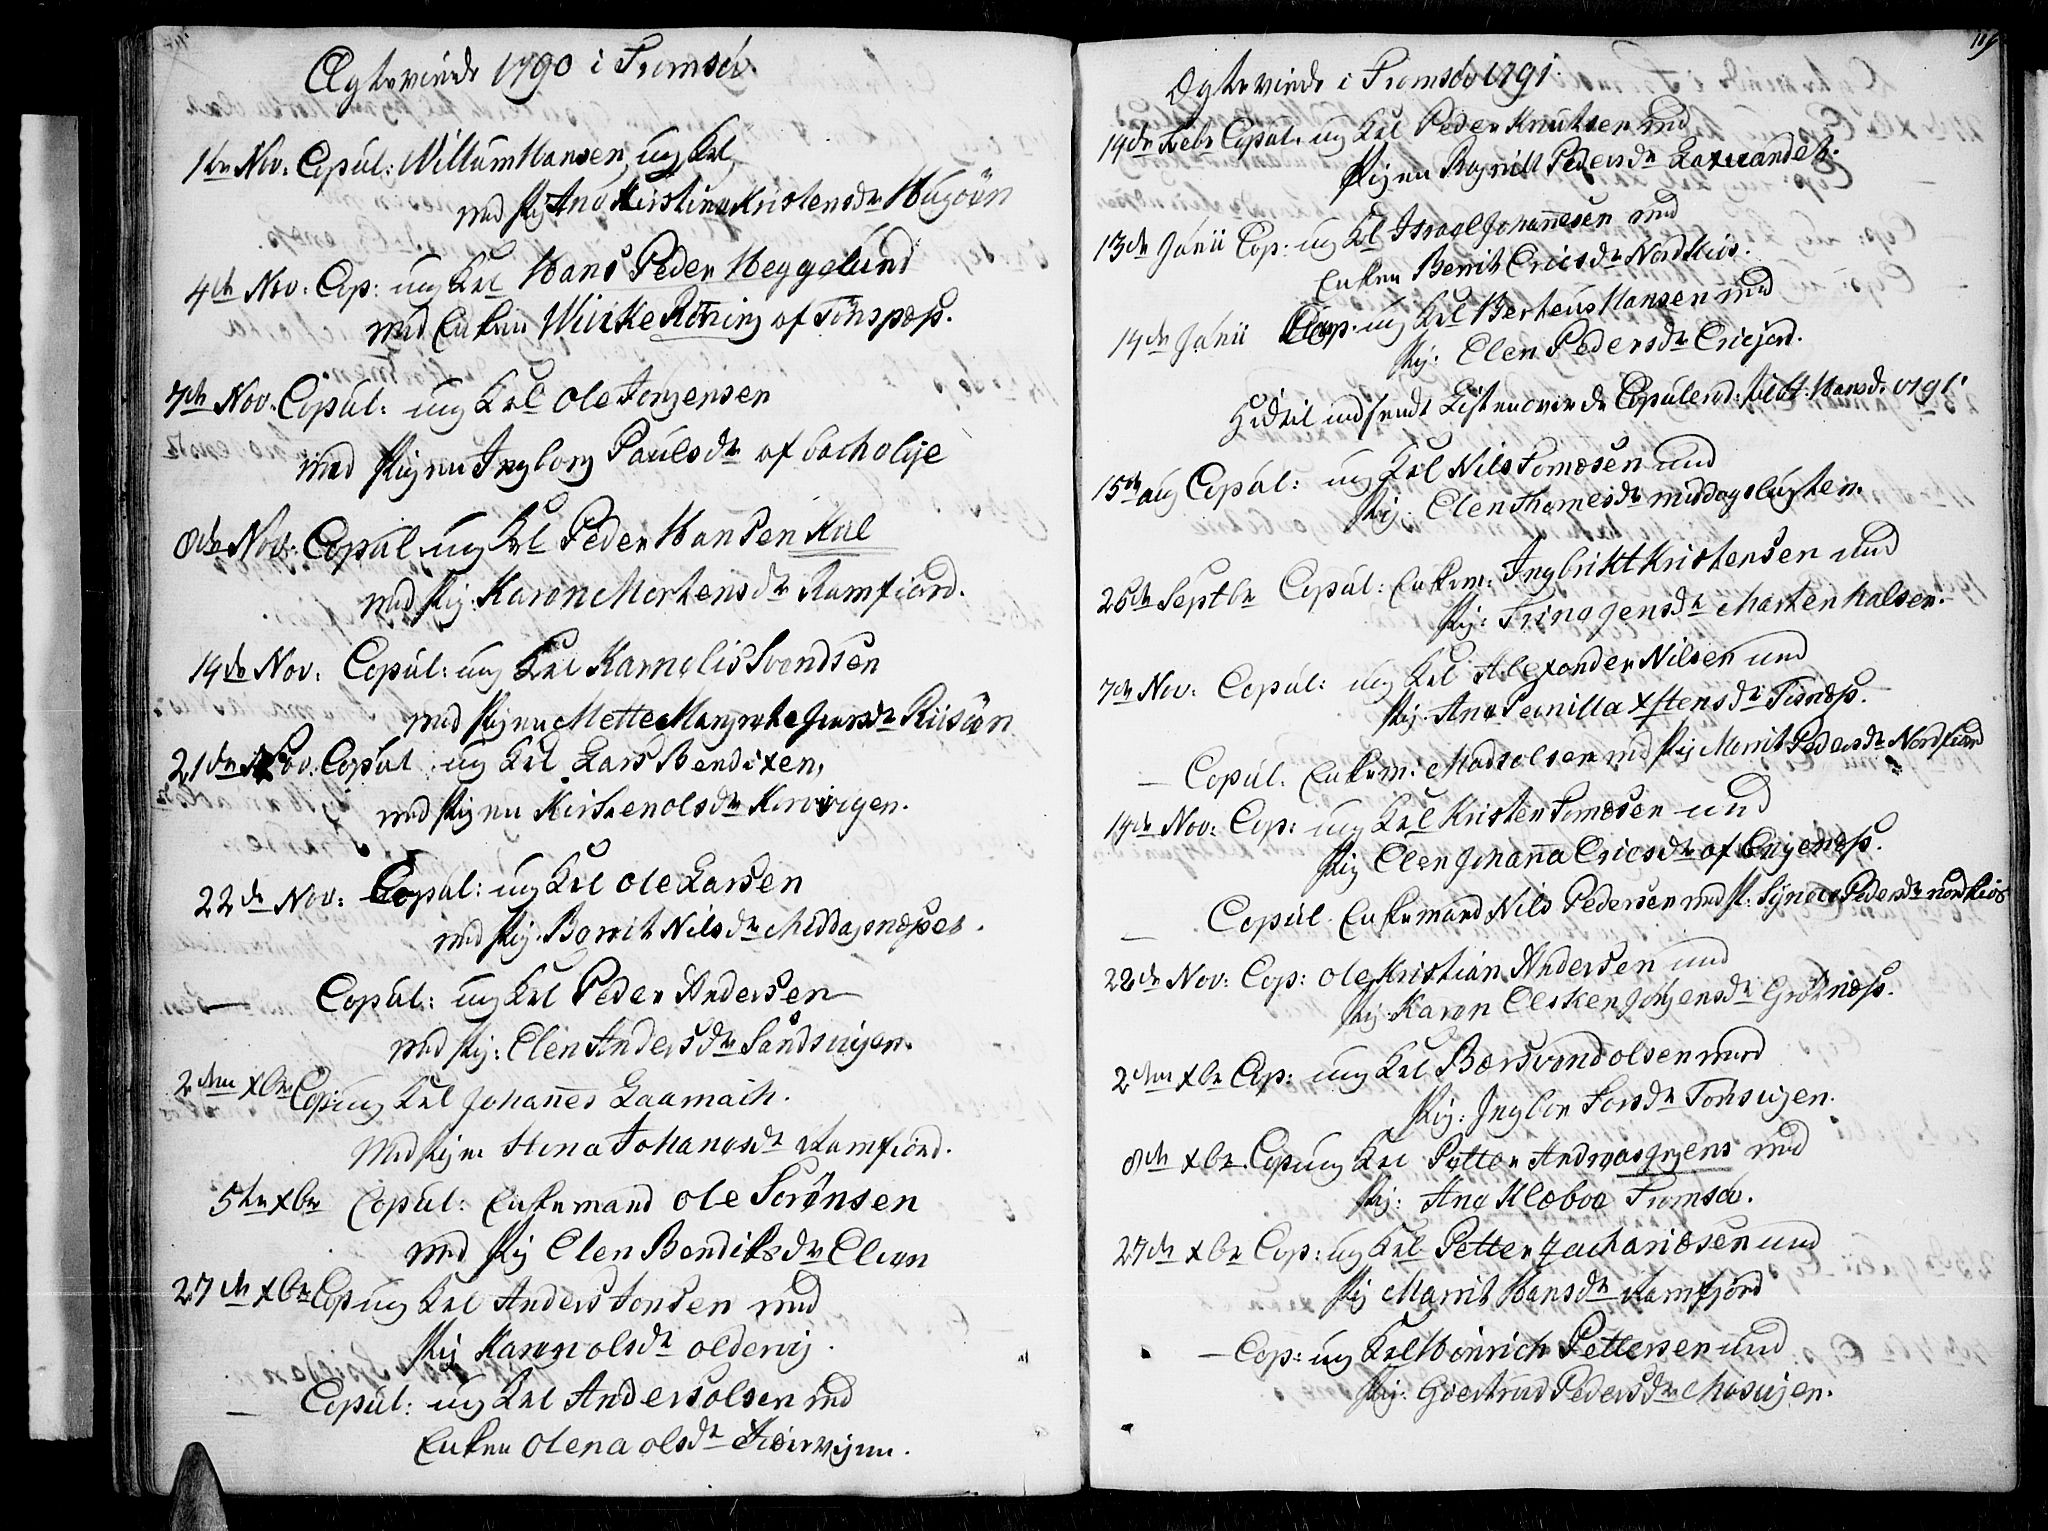 Ægtevinde 1790 i Tromsöe.
1te Nov. Copul: Willum Hansen ung Karl
med Pig Ana Kirstina Kristensdr
4de Nov. Cop: ung Karl Hans Peder Heggelund
med Enken Wiirke Röning af
7de Nov. Copul: ung Karl Ole Jonsensen
med Pigen Ingborg Paulsdr af
8de Nov: Copul ung Karl Peder Hansen
med Pig: Karen Mortensdr Ramfiord.
14de Nov: Copul: ung Karl Karnelis Svendsen
med Pigen Mette Margrete Riisöen
21de Nov: Copul ung Karl Lars Bendixen,
med Pigen Kirsten Olsdr
22de Nov: Copul: ung Karl Ole Larsen
med Pig. Berrit Nilsdr Middagsnæset.
— Copul: ung Karl Peder Andersen
med Pig: Elen Andersdr Sandvigen.
2den Xbr Cop: ung Karl Johannes
Med Pigen Stina Johansdr Ramfiord.
5te Xbr Copul: Enkemand Ole Sorønsen
med Pig Elen Bendiksdr
27de Xbr Cop ung Karl Anders Jonsen med
Pig Karen Olsdr Oldervig.
— Copul: ung Karl Anders Olsen med
Enken Olena Olsdr
Ægtevinde i Tromsöe 1791.
14de Febr Copul. ung Karl Peder Knutsen med
Pigen Ragnill Pedersdr Laxvandet.
13de Junii Cop: ung Karl Israel Johannesen med
Enken Berrit Ericsdr Nordkios.
14de Junii Cop. ung Karl Berteus Hansen med
Pig: Elen Pedersdr Ericjord.
Hidtil indsendt Listen over de Copulered: 1791
15de Aug Copul: ung Karl Nils Tomæsen med
Pig. Elen Thomesdr
26de Septbr Copul: Enkem: Ingbrikt Kristensen med
Pig: Trina Jensdr Marten
7de Nov: Copul: ung Karl Alexander Nilsen med
Pig. Ana Pernilla Xstensdr Tisnæss.
— Copul. Enkem: Mads Olsen med Pig Marrit Pedersdr
14de Nov: Cop: ung Karl Kristen Tomæsen med
Pig Elen Johanna Ericsdr af
— Copul. Enkemand Nils Pedersen med P: Pedersdr Nordkios
22de Nov: Cop: Ole Kristian Andersen med
Pig. Karen Elesken Grötnæss.
2den Xbr Cop: ung Karl Bærsvend Olsen med
Pig: Ingbor Tonsvigen.
8de Xbr. Cop ung Karl Petter Andreas Grijens med
Pig: Ana Klæboe Tromsöe.
27de Xbr Cop: ung Karl Petter Zachariæsen med
Pig Marrit Hansdr Ramfjörd
— Cop: ung Karl Henrich Pettersen med
Pig: Goertrud Pedersdr